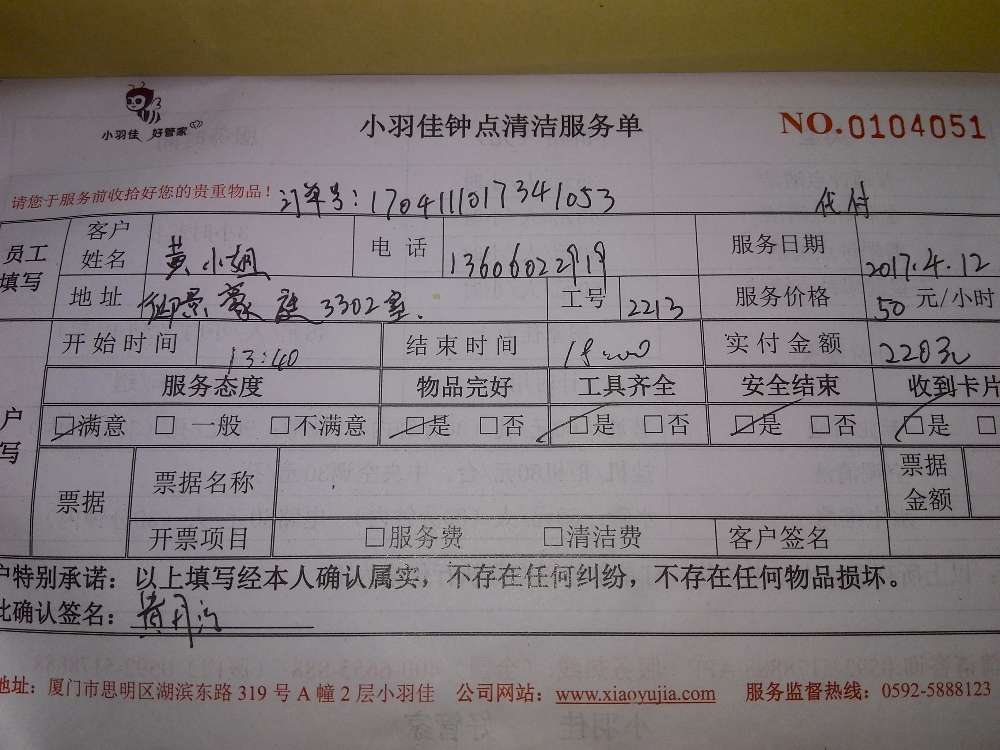 小羽佳 好管家
小羽佳钟点清洁服务单
NO.0104051
请您于服务前收拾好您的贵重物品! 订单号:1704111017341053 代付
员工填写 客户姓名 黄小姐 电话 13606022919 服务日期 2017.4.12
地址 御景豪庭3302室. 工号 2213 服务价格 50元/小时
开始时间 13:40 结束时间 18:00 实付金额 220元
服务态度 物品完好 工具齐全 安全结束 收到卡片
户写 □满意 □一般 □不满意 □是 □否 □是 □否 □是 □否 □是 □
票据 票据名称 票据金额
开票项目 □服务费 □清洁费 客户签名
户特别承诺:以上填写经本人确认属实,不存在任何纠纷,不存在任何物品损坏。
此确认签名:黄
地址:厦门市思明区湖滨东路319号A幢2层小羽佳 公司网站:www.xiaoyujia.com 服务监督热线:0592-5888123